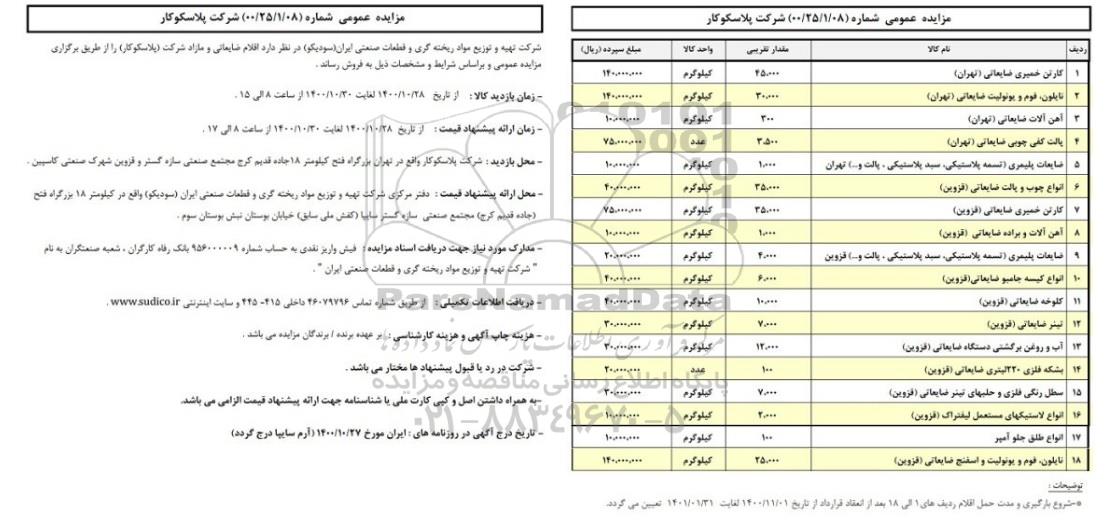 مزایده عمومی شماره (۰۰/۲۵/۱/۰۸) شرکت پلاسکوکار
ردیف نام کالا مقدار تقریبی واحد کالا مبلغ سپرده (ریال)
۱ کارتن خمیری ضایعاتی (تهران) ۴۵.۰۰۰ کیلوگرم ۱۴۰.۰۰۰.۰۰۰
۲ نایلون، فوم و یونولیت ضایعاتی (تهران) ۳۰.۰۰۰ کیلوگرم ۱۴۰.۰۰۰.۰۰۰
۳ آهن آلات ضایعاتی (تهران) ۳۰۰ کیلوگرم ۱۰.۰۰۰.۰۰۰
۴ پالت کفی چوبی ضایعاتی (تهران) ۳.۵۰۰ عدد ۷۵.۰۰۰.۰۰۰
۵ ضایعات پلیمری (تسمه پلاستیکی، سبد پلاستیکی ، پالت و...) تهران ۱.۰۰۰ کیلوگرم ۱۰.۰۰۰.۰۰۰
۶ انواع چوب و پالت ضایعاتی (قزوین) ۳۵.۰۰۰ کیلوگرم ۴۰.۰۰۰.۰۰۰
۷ کارتن خمیری ضایعاتی (قزوین) ۳۵.۰۰۰ کیلوگرم ۷۵.۰۰۰.۰۰۰
۸ آهن آلات و براده ضایعاتی (قزوین) ۱.۰۰۰ کیلوگرم ۱۰.۰۰۰.۰۰۰
۹ ضایعات پلیمری (تسمه پلاستیکی، سبد پلاستیکی ، پالت و...) قزوین ۴.۰۰۰ کیلوگرم ۲۰.۰۰۰.۰۰۰
۱۰ انواع کیسه جامبو ضایعاتی(قزوین) ۶.۰۰۰ کیلوگرم ۴۰.۰۰۰.۰۰۰
۱۱ کلوخه ضایعاتی (قزوین) ۱۰.۰۰۰ کیلوگرم ۴۰.۰۰۰.۰۰۰
۱۲ تینر ضایعاتی (قزوین) ۷.۰۰۰ کیلوگرم ۳۰.۰۰۰.۰۰۰
۱۳ آب و روغن برگشتی دستگاه ضایعاتی (قزوین) ۱۲.۰۰۰ کیلوگرم ۳۰.۰۰۰.۰۰۰
۱۴ بشکه فلزی ۲۲۰لیتری ضایعاتی (قزوین) ۱۰۰ عدد ۲۰.۰۰۰.۰۰۰
۱۵ سطل رنگی فلزی و حلبهای تینر ضایعاتی (قزوین) ۷.۰۰۰ کیلوگرم ۳۰.۰۰۰.۰۰۰
۱۶ انواع لاستیکهای مستعمل لیفتراک (قزوین) ۲.۰۰۰ کیلوگرم ۱۰.۰۰۰.۰۰۰
۱۷ انواع طلق جلو آمپر ۱۰۰ کیلوگرم ۱۰.۰۰۰.۰۰۰
۱۸ نایلون، فوم و یونولیت و اسفنج ضایعاتی (قزوین) ۲۵.۰۰۰ کیلوگرم ۱۴۰.۰۰۰.۰۰۰
توضیحات :
*-شروع بارگیری و مدت حمل اقلام ردیف های۱ الی ۱۸ بعد از انعقاد قرارداد از تاریخ ۱۴۰۰/۱۱/۰۱ لغایت ۱۴۰۱/۰۱/۳۱ تعیین می گردد.
مزایده عمومی شماره (۰۰/۲۵/۱/۰۸) شرکت پلاسکوکار
شرکت تهیه و توزیع مواد ریخته گری و قطعات صنعتی ایران(سودیکو) در نظر دارد اقلام ضایعاتی و مازاد شرکت (پلاسکوکار) را از طریق برگزاری
مزایده عمومی و براساس شرایط و مشخصات ذیل به فروش رساند .
– زمان بازدید کالا : از تاریخ ۱۴۰۰/۱۰/۲۸ لغایت ۱۴۰۰/۱۰/۳۰ از ساعت ۸ الی ۱۵ .
– زمان ارائه پیشنهاد قیمت : از تاریخ ۱۴۰۰/۱۰/۲۸ لغایت ۱۴۰۰/۱۰/۳۰ از ساعت ۸ الی ۱۷ .
– محل بازدید : شرکت پلاسکوکار واقع در تهران بزرگراه فتح کیلومتر ۱۸جاده قدیم کرج مجتمع صنعتی سازه گستر و قزوین شهرک صنعتی کاسپین .
– محل ارائه پیشنهاد قیمت : دفتر مرکزی شرکت تهیه و توزیع مواد ریخته گری و قطعات صنعتی ایران (سودیکو) واقع در کیلومتر ۱۸ بزرگراه فتح
(جاده قدیم کرج) مجتمع صنعتی سازه گستر سایپا (کفش ملی سابق) خیابان بوستان نبش بوستان سوم .
– مدارک مورد نیاز جهت دریافت اسناد مزایده : فیش واریز نقدی به حساب شماره ۹۵۶۰۰۰۰۰۹ بانک رفاه کارگران ، شعبه صنعتگران به نام
" شرکت تهیه و توزیع مواد ریخته گری و قطعات صنعتی ایران " .
– دریافت اطلاعات تکمیلی : از طریق شماره تماس ۴۶۰۷۹۷۹۶ داخلی ۴۱۵- ۴۴۵ و سایت اینترنتی www.sudico.ir .
– هزینه چاپ آگهی و هزینه کارشناسی : بر عهده برنده / برندگان مزایده می باشد .
– شرکت در رد یا قبول پیشنهاد ها مختار می باشد .
–به همراه داشتن اصل و کپی کارت ملی یا شناسنامه جهت ارائه پیشنهاد قیمت الزامی می باشد.
– تاریخ درج آگهی در روزنامه های : ایران مورخ ۱۴۰۰/۱۰/۲۷ (آرم سایپا درج گردد)
ParsNamadData
مرکز فرآوری اطلاعات پارس نماد داده ها
پایگاه اطلاع رسانی مناقصه و مزایده
۰۲۱-۸۸۳۴۹۶۷۰-۵